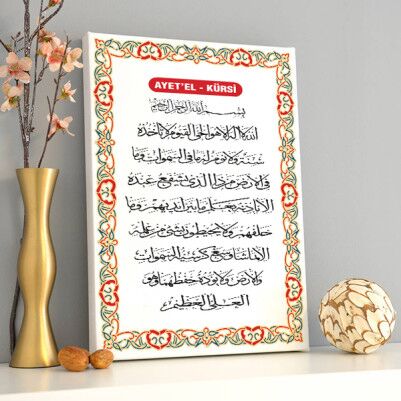 AYET'EL - KÜRSİ
بسم الله الرحمن الرحيم
الله لا إله إلا هو الحي القيوم لا تأخذه
سنة ولا نوم له ما في السموات وما
في الأرض من ذا الذي يشفع عنده
إلا بإذنه يعلم ما بين أيديهم وما
خلفهم ولا يحيطون بشيء من علمه
إلا بما شاء وسع كرسيه السموات
والأرض ولا يؤده حفظهما وهو
العلي العظيم